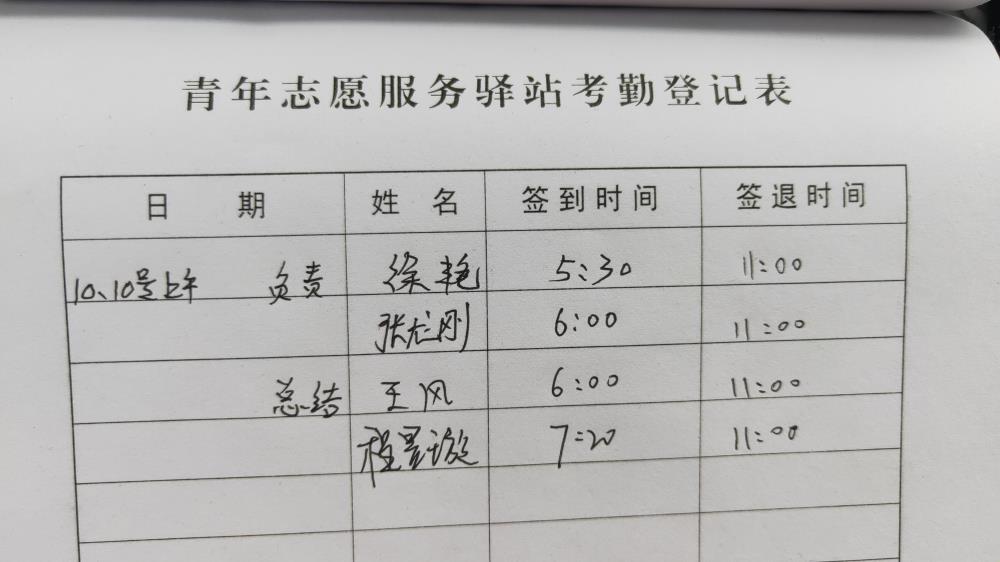 青年志愿服务驿站考勤登记表
日 期 姓 名 签到时间 签退时间
10、10号上午 负责 徐艳 5:30 11:00
张 刚 6:00 11:00
总结 王风 6:00 11:00
程 璇 7:20 11:00